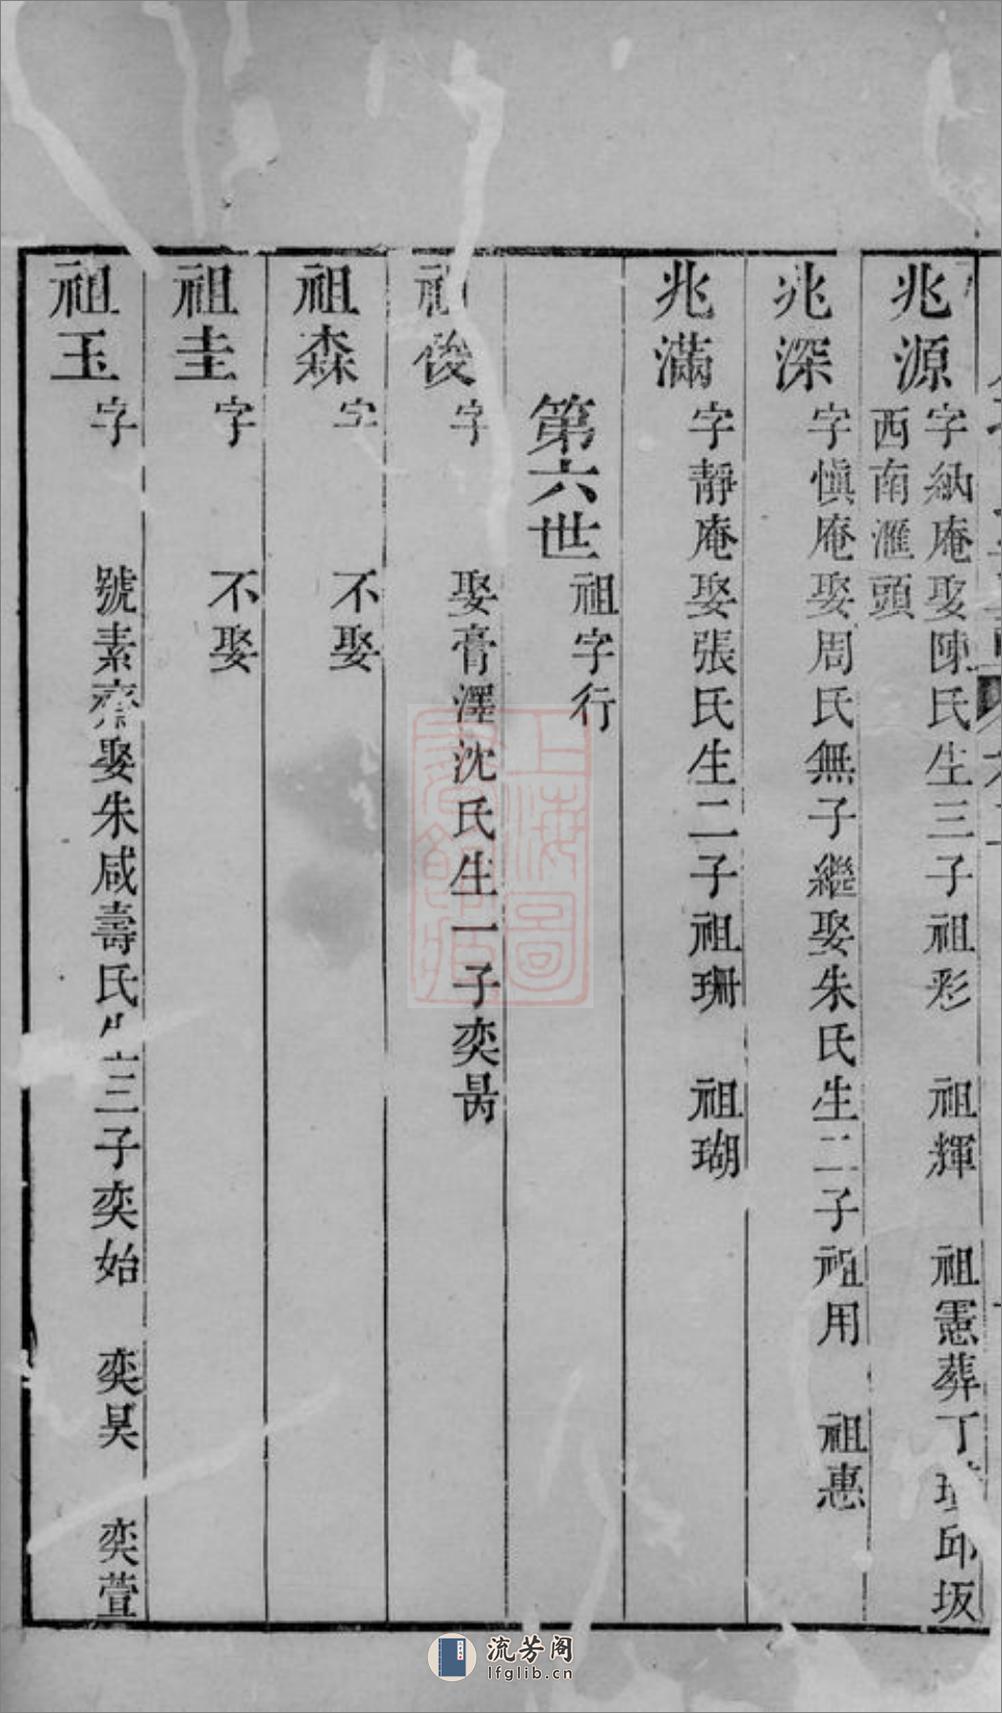 兆源 字納庵娶陳氏生三子祖彩 祖輝 祖憲葬丁 邱坂
西南滙頭
兆深 字愼庵娶周氏無子繼娶朱氏生二子祖用 祖惠
兆滿 字靜庵娶張氏生二子祖珊 祖瑚
第六世 祖字行
祖俊 字 娶膏澤沈氏生一子奕昺
祖森 字 不娶
祖圭 字 不娶
祖玉 字 號素齋娶朱咸壽氏生三子奕始 奕昊 奕萱
上海圖
流芳阁
lfglib.cn